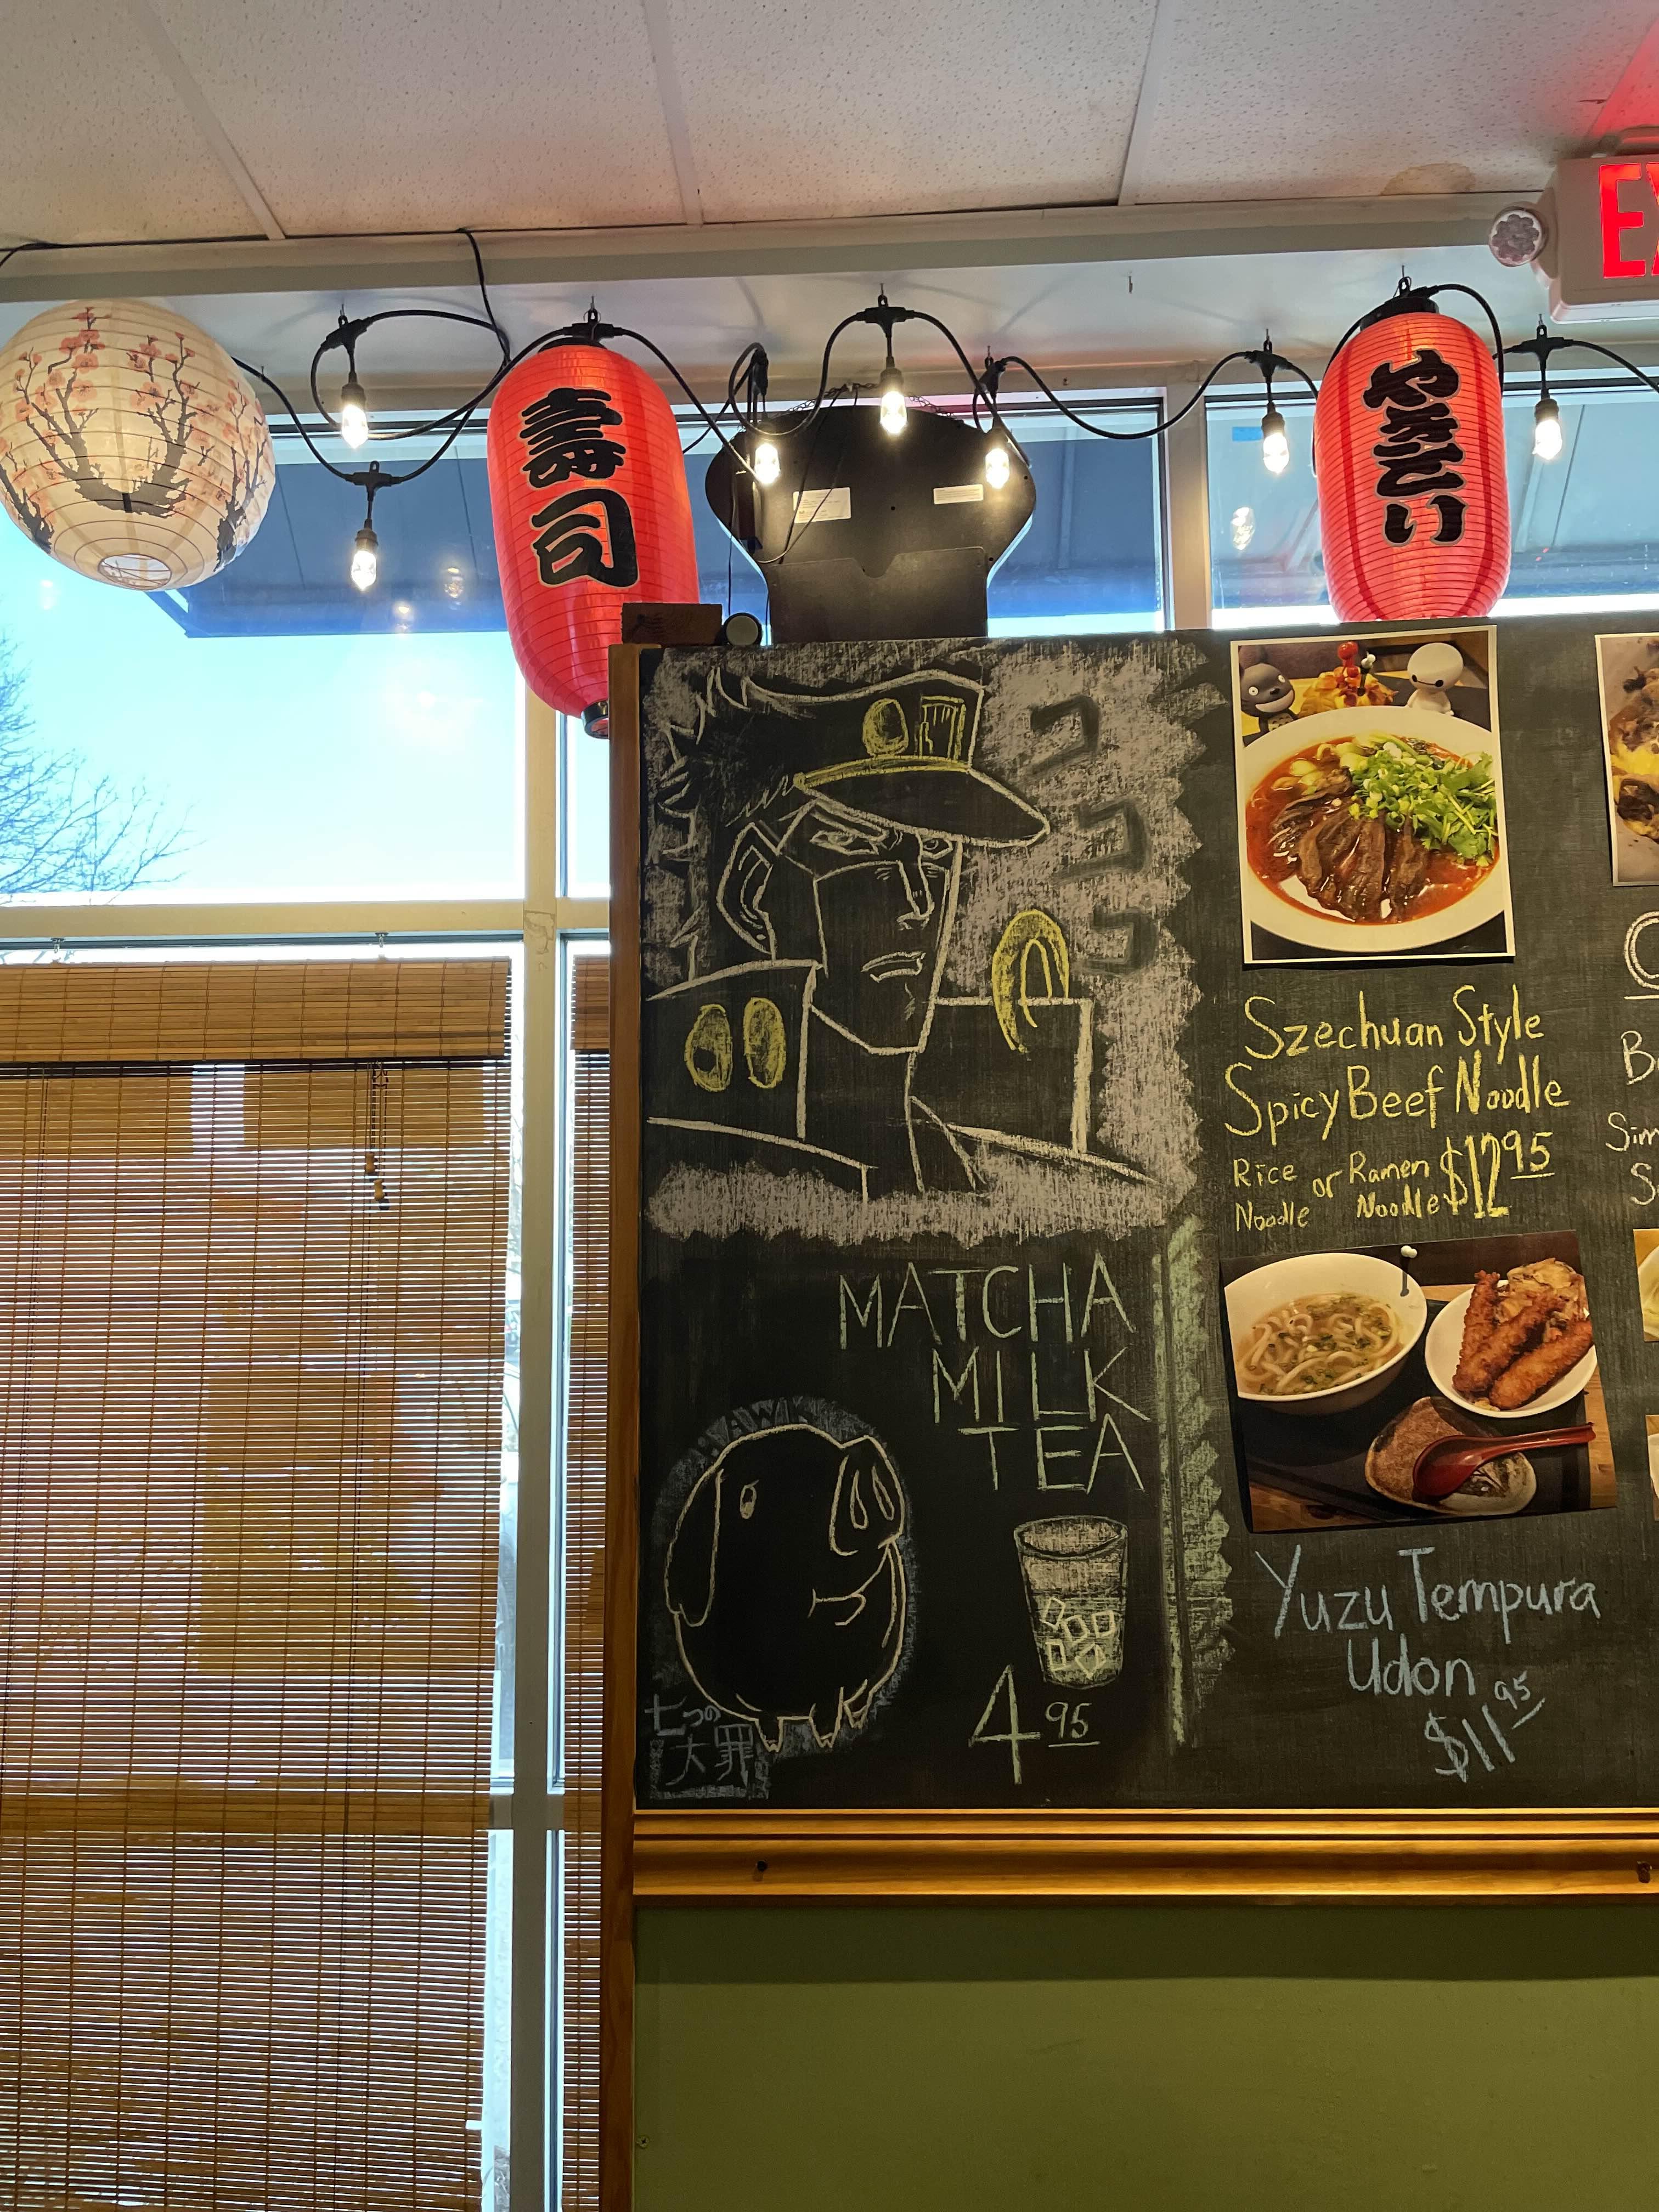 EX
壽司
やきとり
コ
コ
コ
Szechuan Style
Spicy Beef Noodle
Rice Noodle or Ramen Noodle $12.95
MATCHA
MILK
TEA
4.95
七つの
大罪
Yuzu Tempura
Udon
$11.95